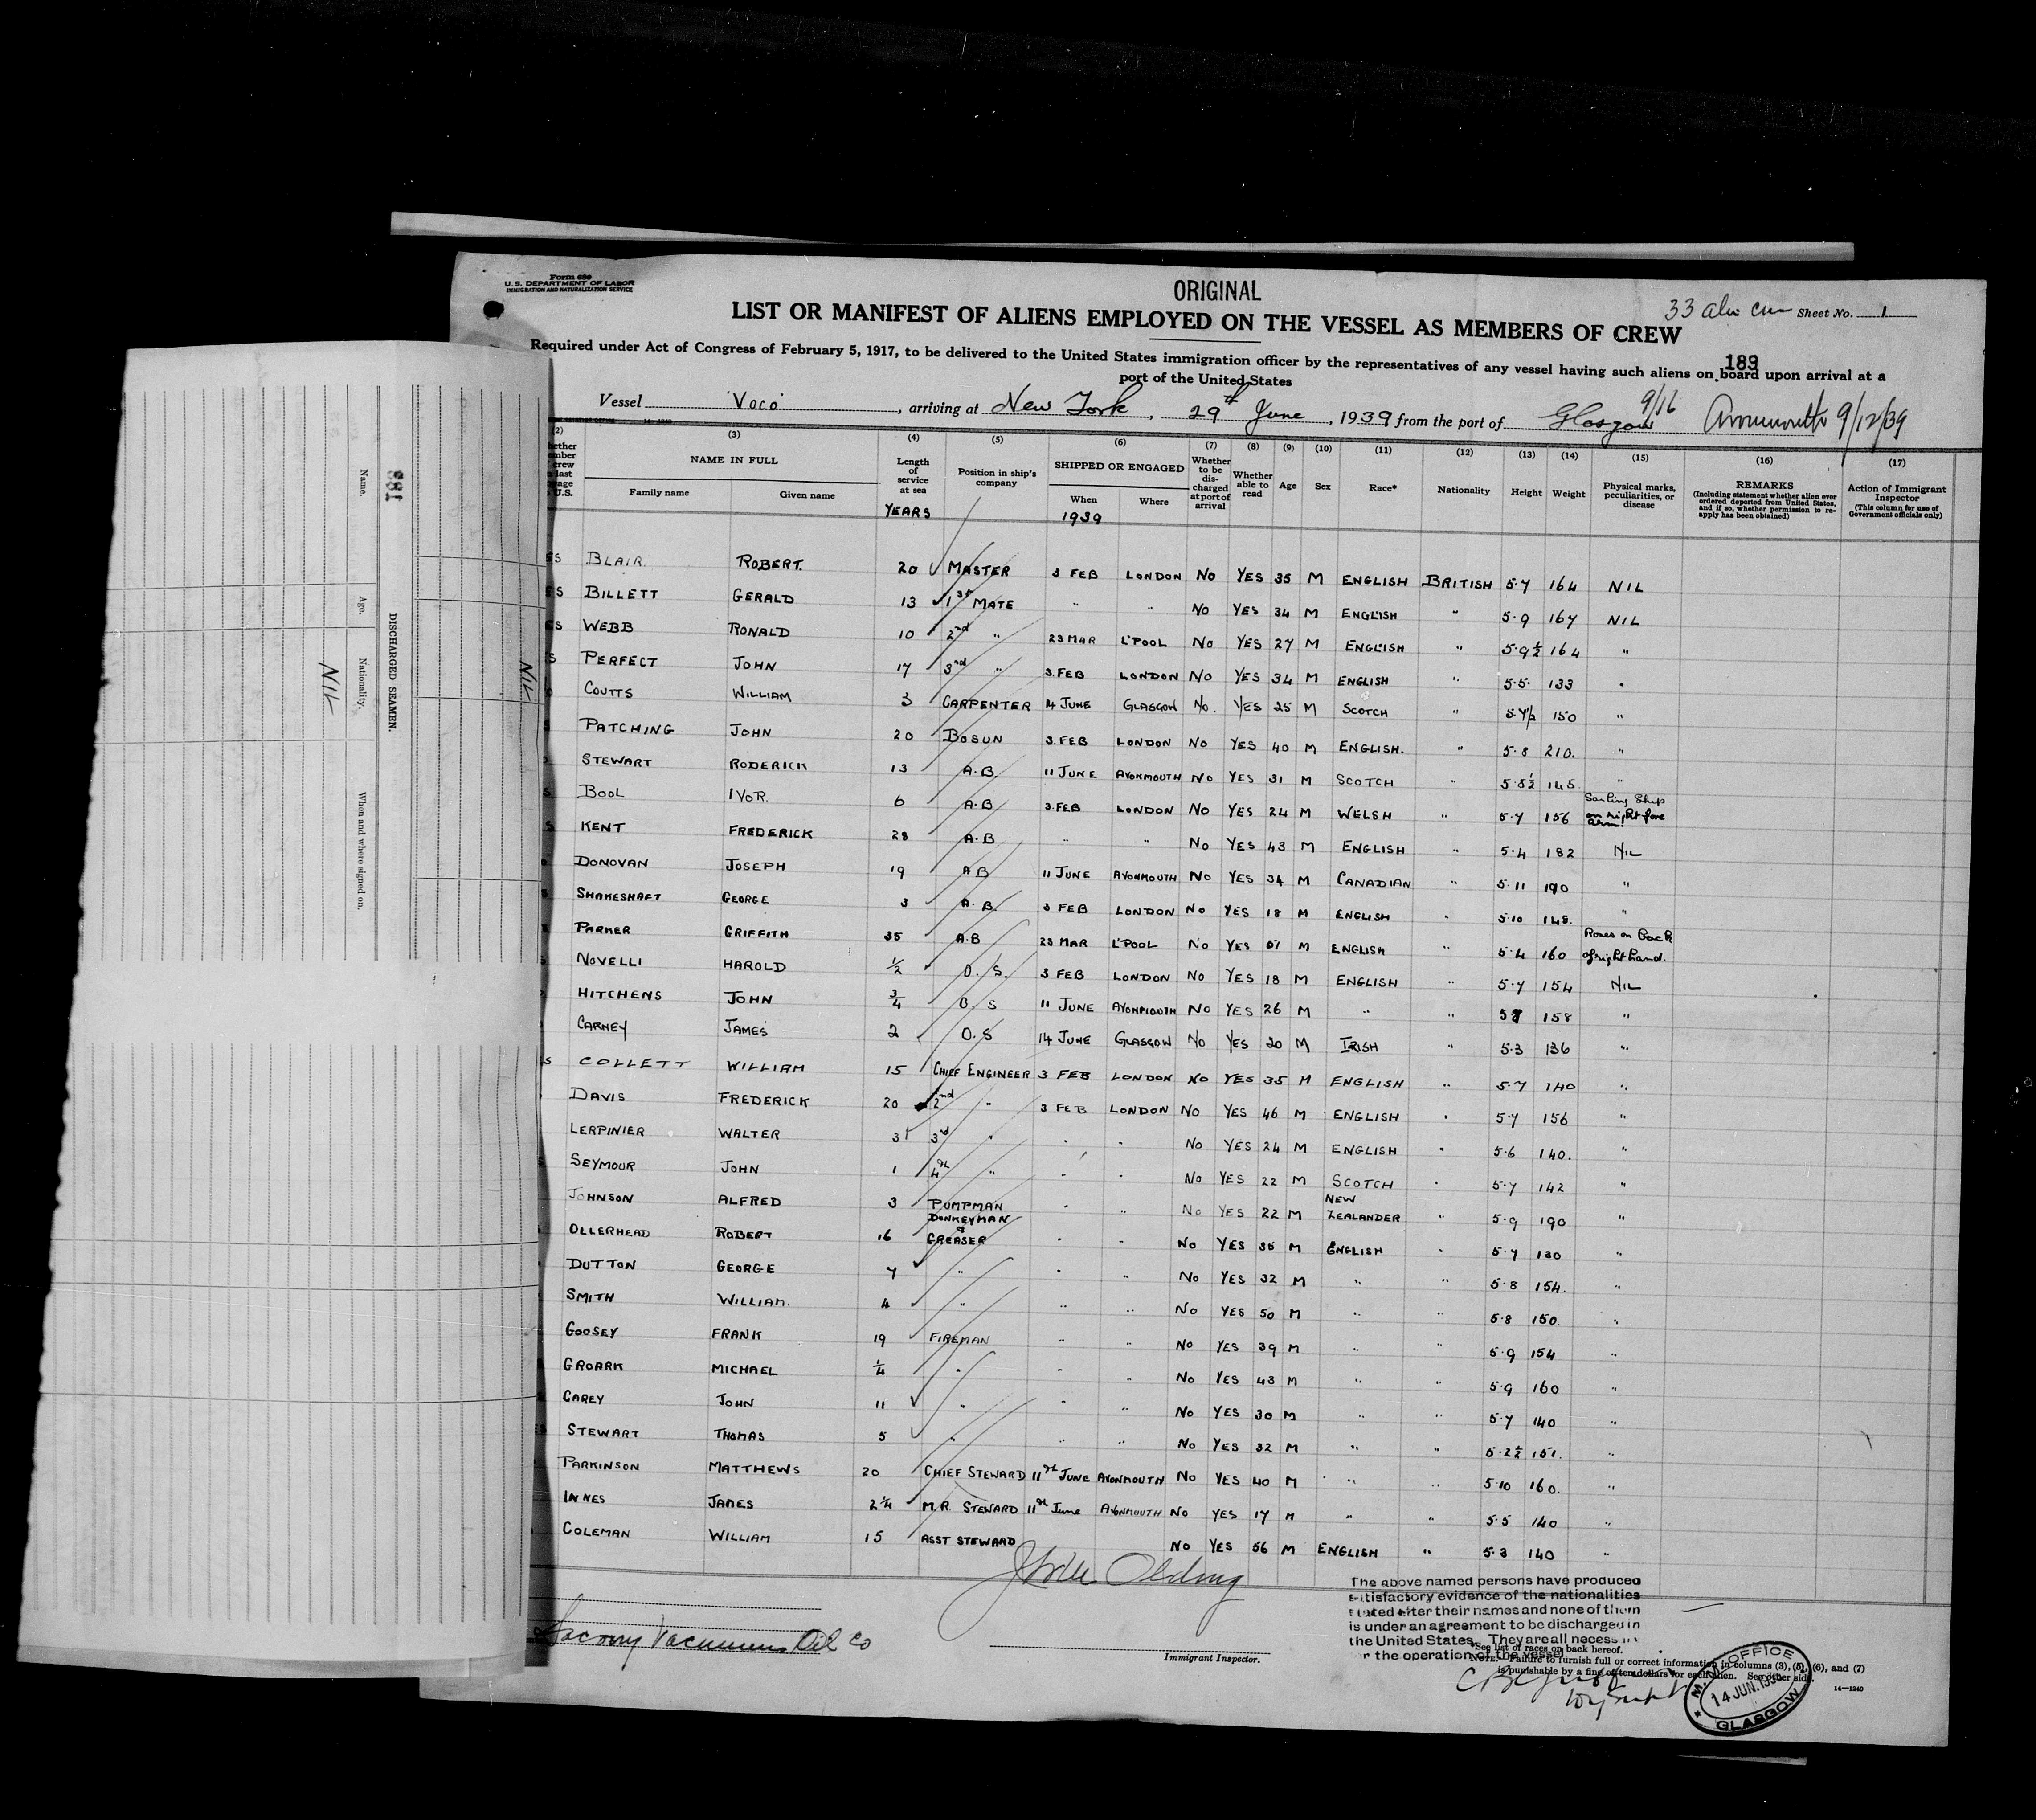 Form 680
U.S. DEPARTMENT OF LABOR
IMMIGRATION AND NATURALIZATION SERVICE
ORIGINAL
33 Sheet No. 1
LIST OR MANIFEST OF ALIENS EMPLOYED ON THE VESSEL AS MEMBERS OF CREW
189
Required under Act of Congress of February 5, 1917, to be delivered to the United States immigration officer by the representatives of any vessel having such aliens on board upon arrival at a
port of the United States
Vessel 'Voco' , arriving at New York , 29th June , 1939 from the port of Glasgow 9/16 Avonmouth 9/12/39
(2) (3) (4) (5) (6) (7) (8) (9) (10) (11) (12) (13) (14) (15) (16) (17)
NAME IN FULL
Family name Given name
Length of service at sea
YEARS
Position in ship's company
SHIPPED OR ENGAGED
When Where
1939
Whether to be discharged at port of arrival
Whether able to read
Age Sex Race* Nationality Height Weight
Physical marks, peculiarities, or disease
REMARKS
(Including statement whether alien ever ordered deported from United States, and if so, whether permission to reapply has been obtained)
Action of Immigrant Inspector
(This column for use of Government officials only)
BLAIR ROBERT. 20 MASTER 3 FEB LONDON NO YES 35 M ENGLISH BRITISH 5.7 164 NIL
BILLETT GERALD 13 1st MATE " " NO YES 34 M ENGLISH " 5.9 167 NIL
WEBB RONALD 10 2nd " 23 MAR L'POOL NO YES 27 M ENGLISH " 5.9½ 164 "
PERFECT JOHN 17 3rd " 3.FEB LONDON NO YES 34 M ENGLISH " 5.5. 133 "
COUTTS WILLIAM 3 CARPENTER 14 JUNE GLASGOW No. YES 25 M SCOTCH " 5.7½ 150 "
PATCHING JOHN 20 BOSUN 3.FEB LONDON NO YES 40 M ENGLISH. " 5.8 210. "
STEWART RODERICK 13 A.B. 11 JUNE AVONMOUTH NO YES 31 M SCOTCH " 5.8½ 145 "
BOOL IVOR. 6 A.B 3.FEB LONDON NO YES 24 M WELSH " 5.7 156 Sailing Ship on right fore arm.
KENT FREDERICK 28 A.B " " NO YES 43 M ENGLISH " 5.4 182 NIL
DONOVAN JOSEPH 19 A B 11 JUNE AVONMOUTH NO YES 34 M CANADIAN " 5.11 190 "
SHAKESHAFT GEORGE 3 A.B. 3 FEB LONDON NO YES 18 M ENGLISH " 5.10 148. "
PARKER GRIFFITH 35 A.B 23 MAR L'POOL NO YES M ENGLISH " 5.4 160 Roses on back of right hand.
NOVELLI HAROLD ½ O.S. 3 FEB LONDON NO YES 18 M ENGLISH " 5.7 154 NIL
HITCHENS JOHN ¾ O.S 11 JUNE AVONMOUTH NO YES 26 M " " 158 "
CARNEY JAMES 2 O.S 14 JUNE GLASGOW NO YES 20 M IRISH " 5.3 136 "
COLLETT WILLIAM 15 CHIEF ENGINEER 3 FEB LONDON NO YES 35 M ENGLISH " 5.7 140 "
DAVIS FREDERICK 20 2nd " 3 FEB LONDON NO YES 46 M ENGLISH " 5.7 156 "
LERPINIER WALTER 3 3rd " " " NO YES 24 M ENGLISH " 5.6 140. "
SEYMOUR JOHN 1 4th " " " NO YES 22 M SCOTCH " 5.7 142 "
JOHNSON ALFRED 3 PUMPMAN " " No YES 22 M NEW ZEALANDER " 5.9 190 "
OLLERHEAD ROBERT 16 DONKEYMAN & GREASER " " NO YES 35 M ENGLISH " 5.7 130 "
DUTTON GEORGE 7 " " " NO YES 32 M " " 5.8 154. "
SMITH WILLIAM. 4 " " " NO YES 50 M " " 5.8 150. "
GOOSEY FRANK 19 FIREMAN " " NO YES 39 M " " 5.9 154 "
GROARK MICHAEL ¼ " " " NO YES 43 M " " 5.9 160 "
CAREY JOHN 11 " " " NO YES 30 M " " 5.7 140 "
STEWART THOMAS 5 " " " NO YES 32 M " " 5.2½ 151. "
PARKINSON MATTHEWS 20 CHIEF STEWARD 11th JUNE AVONMOUTH NO YES 40 M " " 5.10 160. "
INNES JAMES 2¼ M.R. STEWARD 11th June AVONMOUTH NO YES 17 M " " 5.5 140 "
COLEMAN WILLIAM 15 ASST STEWARD NO YES 56 M ENGLISH " 5.3 140 "
Socony Vacuum Oil Co
Immigrant Inspector.
The above named persons have produced
satisfactory evidence of the nationalities
stated after their names and none of them
is under an agreement to be discharged in
the United States. They are all necess
r the operation of the vessel
*See list of races on back hereof.
NOTE.—Failure to furnish full or correct information in columns (3), (5), (6), and (7)
is punishable by a fine of ten dollars for each alien. See other side.
14—1240
OFFICE
14 JUN. 1939
GLASGOW
189
DISCHARGED SEAMEN.
Name. Age. Nationality. When and where signed on.
NIL
NIL